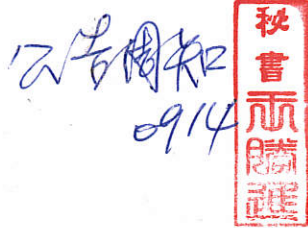 公告周知
0914
秘書
勝進